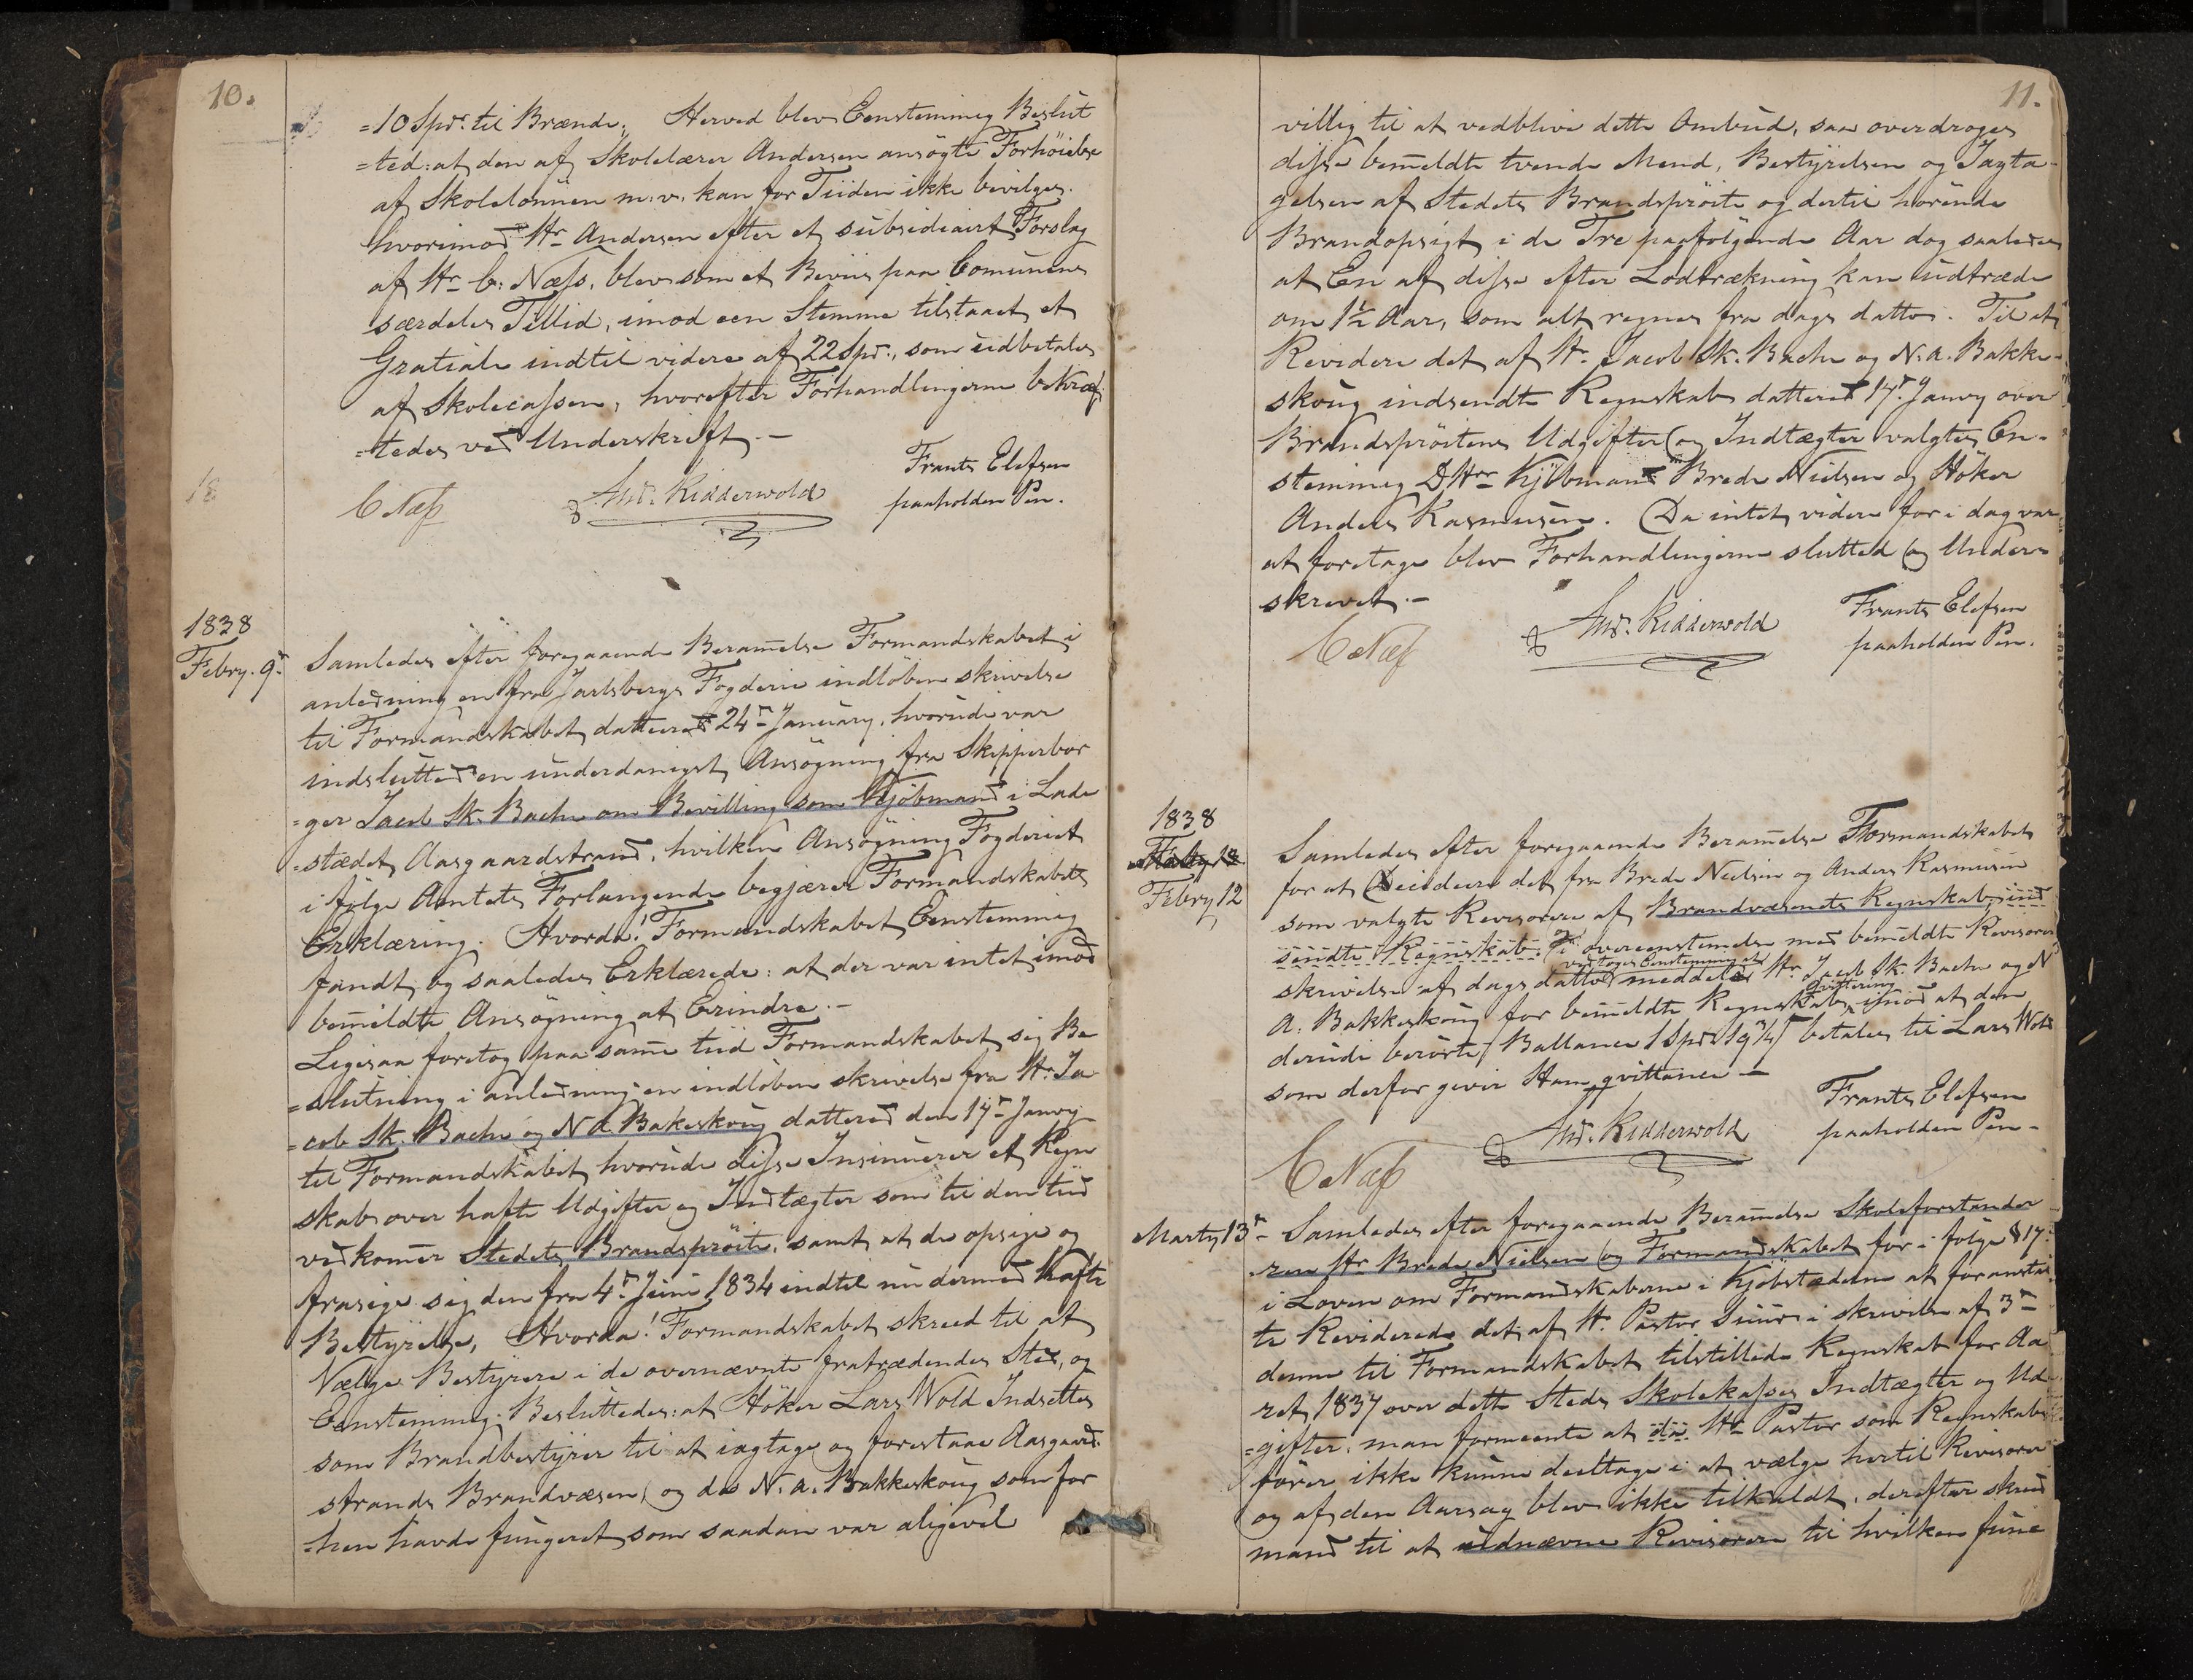 10.
=10 Spd. til Brænde. Herved blev Eenstemmig Beslut
=ted: at den af Skolelærer Andersen ansøgte Forhöielse
af Skolelönnen m: v: kan for Tiiden ikke bevilges.
hvorimod Hr Andersen efter et subsidiairt Forslag
af Hr C: Næss, blev som et Beviis paa Comunens
særdeles Tillid, imod een Stemme tilstaaet et
Gratiale indtil videre af 22 Spd., som udbetales
af Skolecassen, hvorefter Forhandlingerne bekræf
=tedes ved Underskrift.-
C Næss And. Ridderwold Frants Elefsen
paaholden Pen.
18
1838
Febry. 9.
Samledes efter foregaaende Beramelse Formandskabet i
anledning en fra Jarlsbergs Fogderie indlöben skrivelse
til Formandskabet datteret 24r January, hvorudi var
indsluttet en underdanigst Ansögning fra Skipperbor
=ger Jacob Sk. Bache om Bevilling som Kjöbmand i Lade
=stædet Aasgaardstrand, hvilken Ansögning Fogderiet
i fölge Amtets Forlangende begjærer Formandskabets
Erklæring. Hvorda! Formandskabet Eenstemmig
fandt, og saaledes Erklærede: at der var intet imod
bemeldte Ansøgning at Erindre.-
Ligesaa foretog paa same tiid Formandskabet sig Be
=slutning i anledning en indlöben skrivelse fra Hr. Ja
=cob Sk. Bache og N A. Bakeskoug datteret den 17r Janry
til Formandskabet, hvorudi disse Insinuerer et Regn
skab over hafte Udgifter og Indtægter som til den tiid
vedkomer Stedets Brandspröite, samt at de opsige og
frasige sig den fra 4r Juni 1834 indtil nu dermed hafte
Bestyrelse, Hvorda! Formandskabet skreed til at
Vælge Bestyrere i de overnævnte fratrædendes Sted, og
Eenstemmig Besluttedes: at Höker Lars Wold Indsettes
som Brandbestyrer til at iagtage og forestaae Aasgaard-
strands Brandvæsen, og da N. A. Bakkeskoug som for
=hen havde fungeret som saadan var aligevel
11.
villig til at vedblive dette Ombud, saa overdroges
disse bemeldte tvende Mend, Bestyrelsen og Iagta-
gelsen af Stedets Brandspröite og dertil hörende
Brandopsigt i de Tre paafölgende Aar dog saaledes
at En af disse efter Lodtrækning kan udtræde
om 1½ Aar, som alt regnes fra dags datto. Til at
Revidere det af Hr. Jacob Sk. Bache og N. A. Bakke-
skoug indsendte Regnskab datteret 17r. Janry over
Brandspröitens Udgifter og Indtægter valgtes En-
stemmig D Hrr Kjöbmand Brede Nielsen og Höker
Anders Rasmusen. Da intet videre for i dag var
at foretage blev Forhandlingerne sluttet og Under-
skrevet.-
C Næss And. Ridderwold Frants Elefsen
paaholden Pen.
1838
Febry 12
Samledes efter foregaaende Beramelse Formandskabet
for at Decidere det fra Brede Nielsen og Anders Rasmusen
som valgte Revisorere af Brandvæsenets Regnskab, ind
sendte Regnskab. I overeenstemelse med bemeldte Revisorers
skrivelse af dags datto vedtoges Eenstemmig at meddele Hr. Jacob Sk. Bache og N
A. Bakkeskoug for bemeldte Regnskab qvittering imod at den
derudi berörte Ballance 1 Spd 19¾ betales til Lars Wold
som derfor giver Ham qvittance -
C Næss And. Ridderwold Frants Elefsen
paaholden Pen-
Marty 13r
Samledes efter foregaaende Beramelse Skoleforstander
=ren Hr Brede Nielsen og Formandskabet for i fölge §17:
i Loven om Formandskaberne i Kjöbstæderne at foranstal
te Revideret det af Hr. Pastor Suur i skrivelse af 3r
denne til Formandskabet tilstillede Regnskab for Aa
ret 1837 over dette Steds Skolekasses Indtægter og Ud
=gifter, man formeente at da Hr Pastor som Regnskabs
förer ikke kunne deeltage i at vælge hertil Revisorer
og af den Aarsag blev ikke tilkaldt, derefter skreed
mand til at udnævne Revisorere til hvilken func